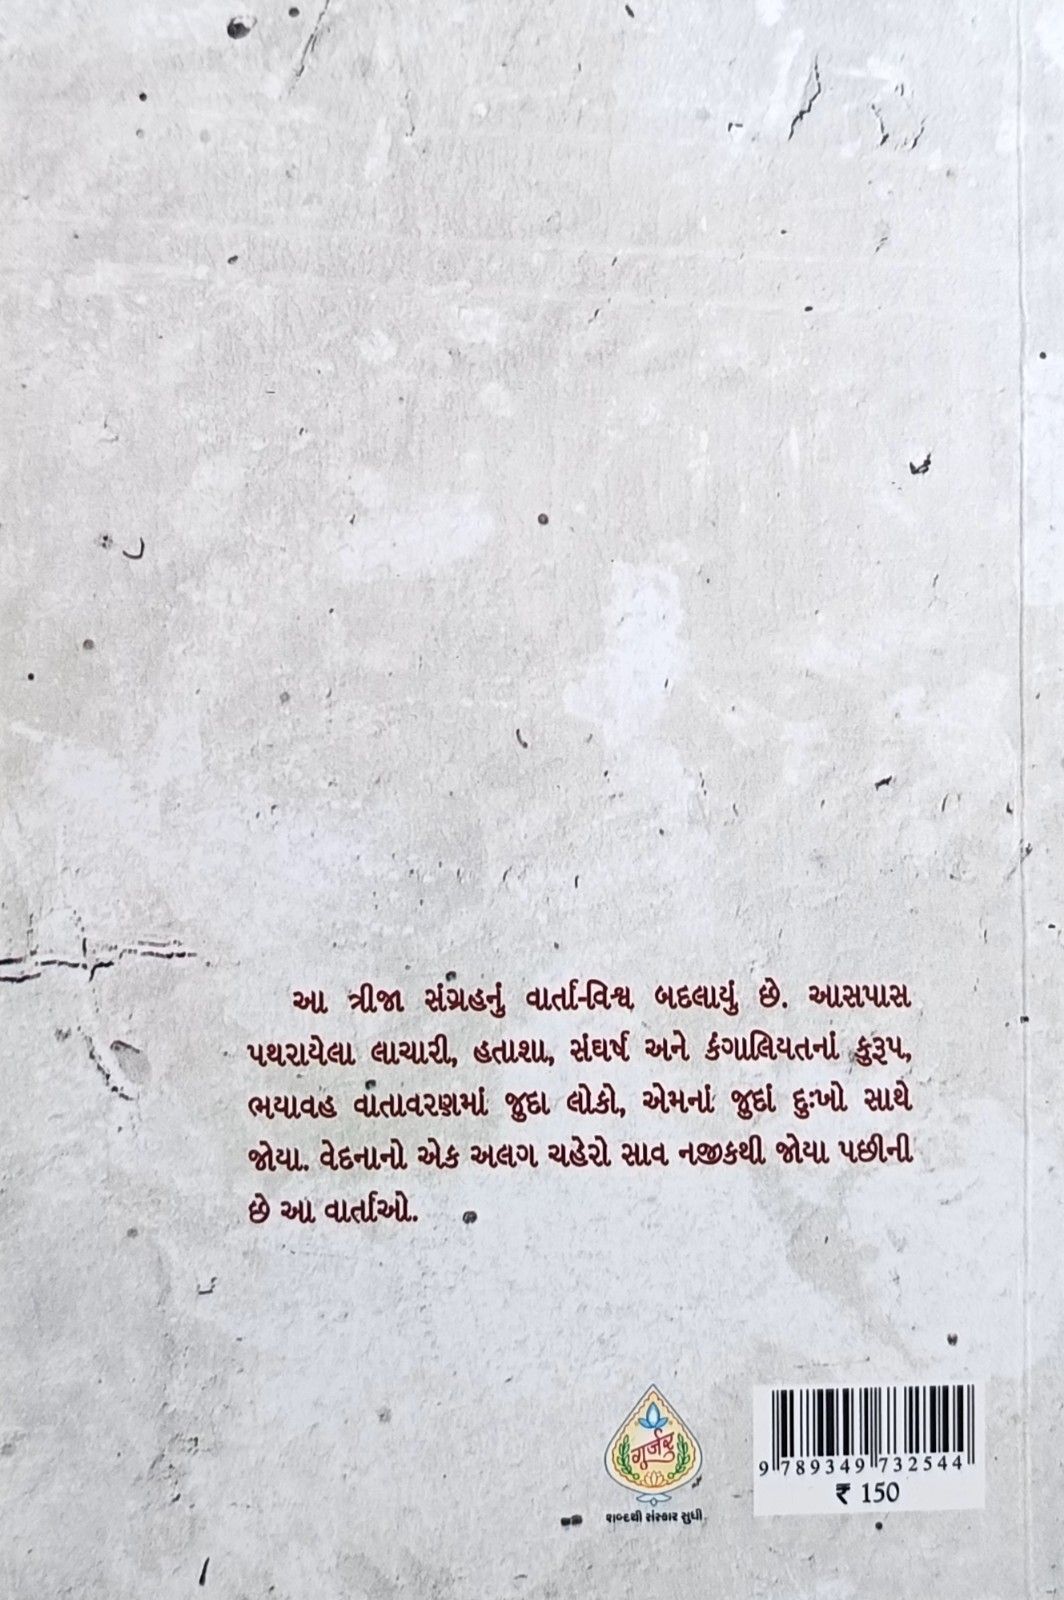 આ ત્રીજા સંગ્રહનું વાર્તા-વિશ્વ બદલાયું છે. આસપાસ
પથરાયેલા લાચારી, હતાશા, સંઘર્ષ અને કંગાલિયતનાં કુરૂપ,
ભયાવહ વાતાવરણમાં જુદા લોકો, એમનાં જુદાં દુઃખો સાથે
જોયા. વેદનાનો એક અલગ ચહેરો સાવ નજીકથી જોયા પછીની
છે આ વાર્તાઓ.
ગૂર્જર
શબ્દથી સંસ્કાર સુધી
9 789349 732544
₹ 150